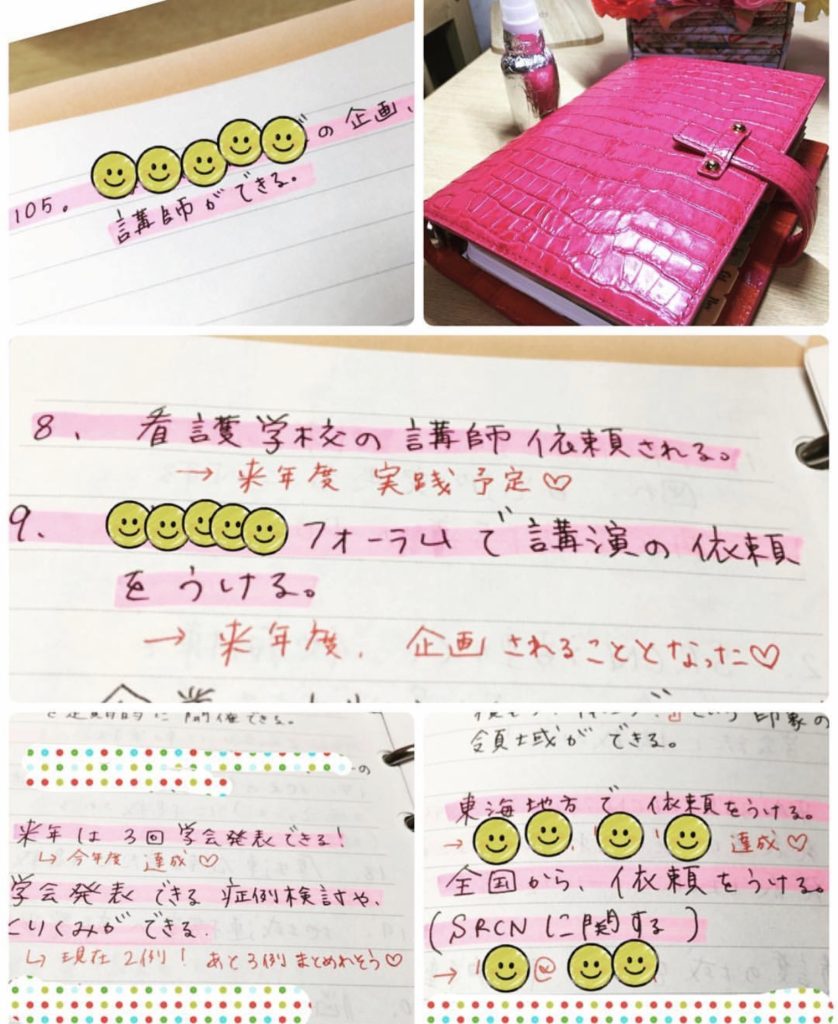 105. の企画、
講師ができる。
8. 看護学校の講師依頼される。
→来年度 実践予定♡
9. フォーラムで講演の依頼
をうける。
→来年度、企画されることとなった♡
開催できる。
の
来年は3回学会発表できる!
↳今年度 達成♡
学会発表できる症例検討や、
とりくみができる。
↳現在2例! あと3例まとめれそう♡
印象の
領域ができる。
東海地方で 依頼をうける。
→ 達成♡
全国から、依頼をうける。
(SRCNに関する)
→